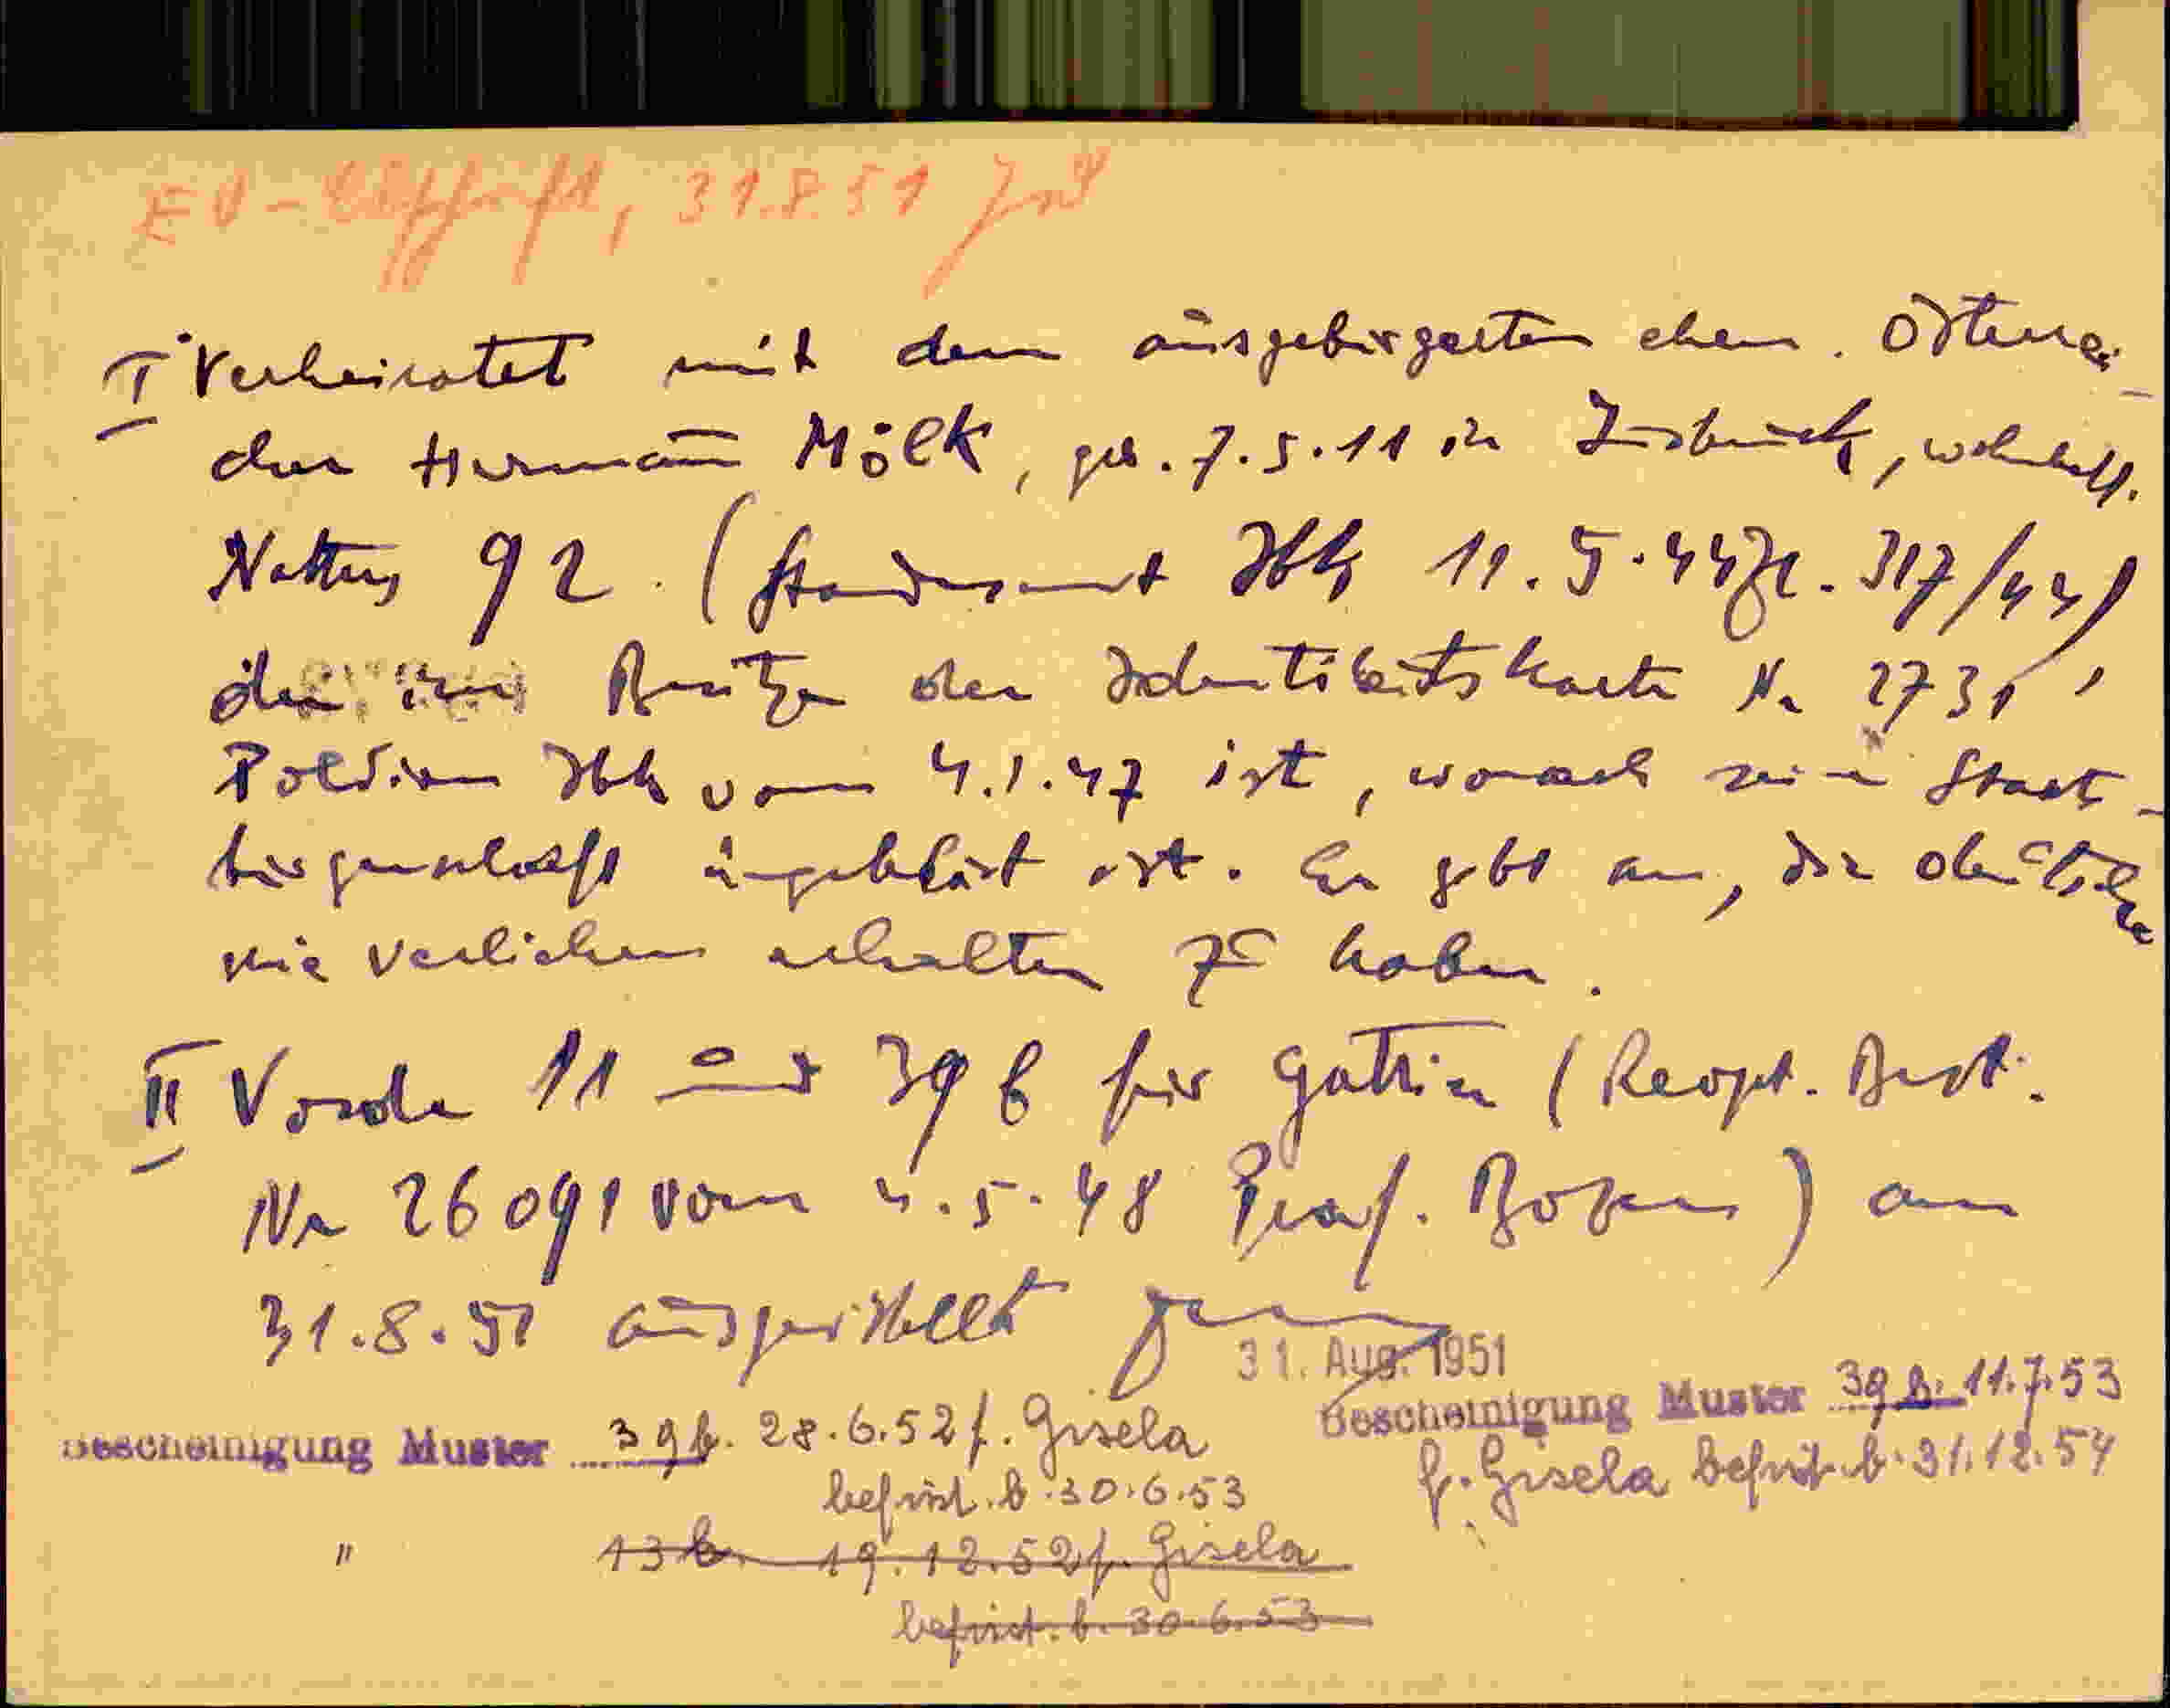 31.8.51
I Verheiratet mit dem ausgebürgerten ehem. Österrei-
cher Hermann Mölk, geb. 7.5.11 in Insbruck, wohnhaft
Natters 92. (Standesamt Ibk 11.5.44 Zl. 317/44)
der im Besitze der Identitätskarte Nr 2731,
PolDion Ibk vom 4.1.47 ist, wonach seine Staats-
bürgerschaft ungeklärt ist. Er gibt an, die deutsche
nie verliehen erhalten zu haben.
II Vordr 11 und 39 b für Gattin (Reopt. Best.
Nr 26091 vom 4.5.48 Präf. Bozen) am
31.8.51 ausgestellt
31. Aug. 1951
Bescheinigung Muster 39 b. 11.7.53
f. Gisela befrist. b. 31.12.54
Bescheinigung Muster 39 b. 28.6.52 f. Gisela
befrist. b. 30.6.53
" 13 b. 19.12.52 f. Gisela
befrist. b. 30.6.53